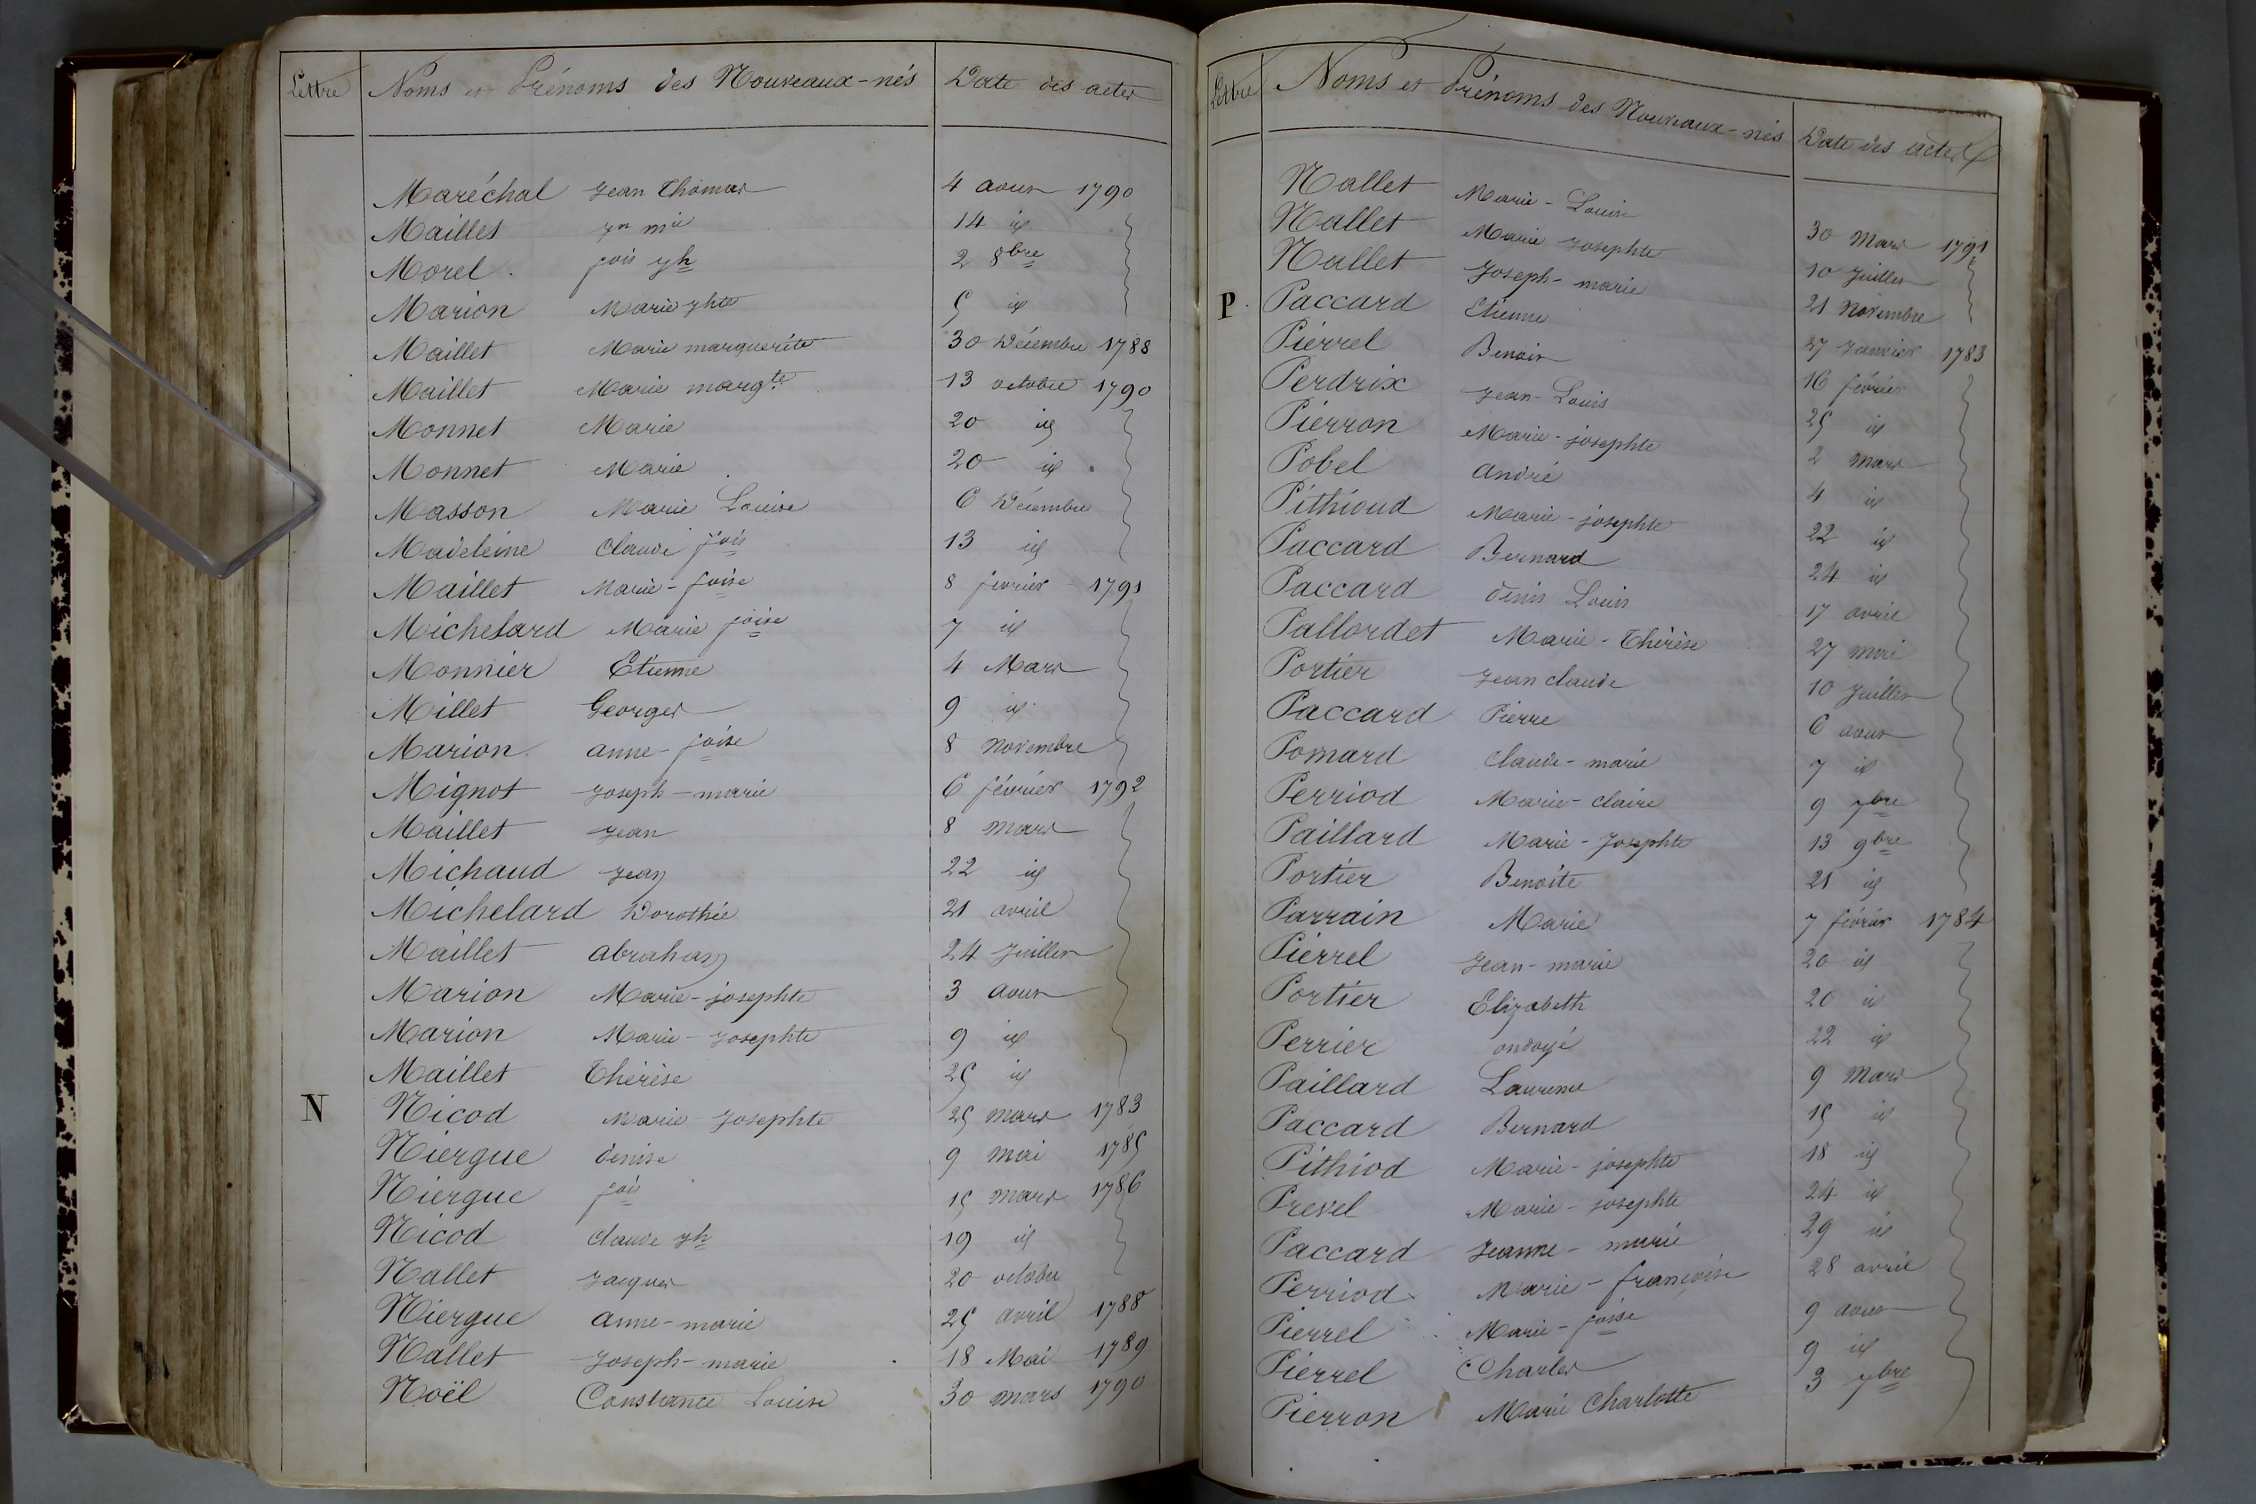 Lettre Noms et Prénoms des Nouveaux-nés Date des actes
Maréchal Jean Thomas 4 aout 1790
Maillet Jn mie 14 id
Morel fois jh 2 8bre
Marion Marie jhte 5 id
Maillet Marie marguerite 30 Décembre 1788
Maillet Marie margte 13 octobre 1790
Monnet Marie 20 id
Monnet Marie 20 id
Masson Marie Louise 6 Décembre
Madeleine Claude fois 13 id
Maillet Marie-foise 8 février 1791
Michelard Marie foise 7 id
Monnier Etienne 4 Mars
Millet Georges 9 id
Marion anne-foise 8 novembre
Mignot Joseph-marie 6 février 1792
Maillet Jean 8 mars
Michaud Jean 22 id
Michelard Dorothée 21 avril
Maillet abraham 24 Juillet
Marion Marie-josephte 3 aout
Marion Marie-Josephte 9 id
Maillet Thérèse 25 id
N Nicod Marie Josephte 25 mars 1783
Niergue denise 9 mai 1785
Niergue fois 15 mars 1786
Nicod Claude jh 19 id
Nallet Jacques 20 octobre
Niergue anne-marie 25 avril 1788
Nallet Joseph-marie 18 Mai 1789
Noël Constance Louise 30 mars 1790
Lettre Noms et Prénoms des Nouveaux-nés Date des actes
Nallet Marie-Louise 30 Mars 1791
Nallet Marie Josephte 10 Juillet
Nallet Joseph-marie 21 Novembre
P Paccard Etienne 27 Janvier 1783
Pierrel Benoit 16 février
Perdrix Jean-Louis 25 id
Pierron Marie-josephte 2 mars
Pobel andré 4 id
Pithioud Marie-josephte 22 id
Paccard Bernard 24 id
Paccard denis Louis 17 avril
Pallordet Marie-Thérèse 27 mai
Portier Jean claude 10 Juillet
Paccard Pierre 6 aout
Pomard Claude-marie 7 id
Perriod Marie-claire 9 7bre
Paillard Marie-Josephte 13 9bre
Portier Benoite 21 id
Parrain Marie 7 février 1784
Pierrel Jean-marie 20 id
Portier Elizabeth 20 id
Perrier ondoyé 22 id
Paillard Laurence 9 Mars
Paccard Bernard 15 id
Pithiod Marie-josephte 18 id
Prevel Marie-josephte 24 id
Paccard Jeanne-marie 29 id
Perriod Marie-françoise 28 avril
Pierrel Marie-foise 9 aout
Pierrel Charles 9 id
Pierron Marie Charlotte 3 7bre